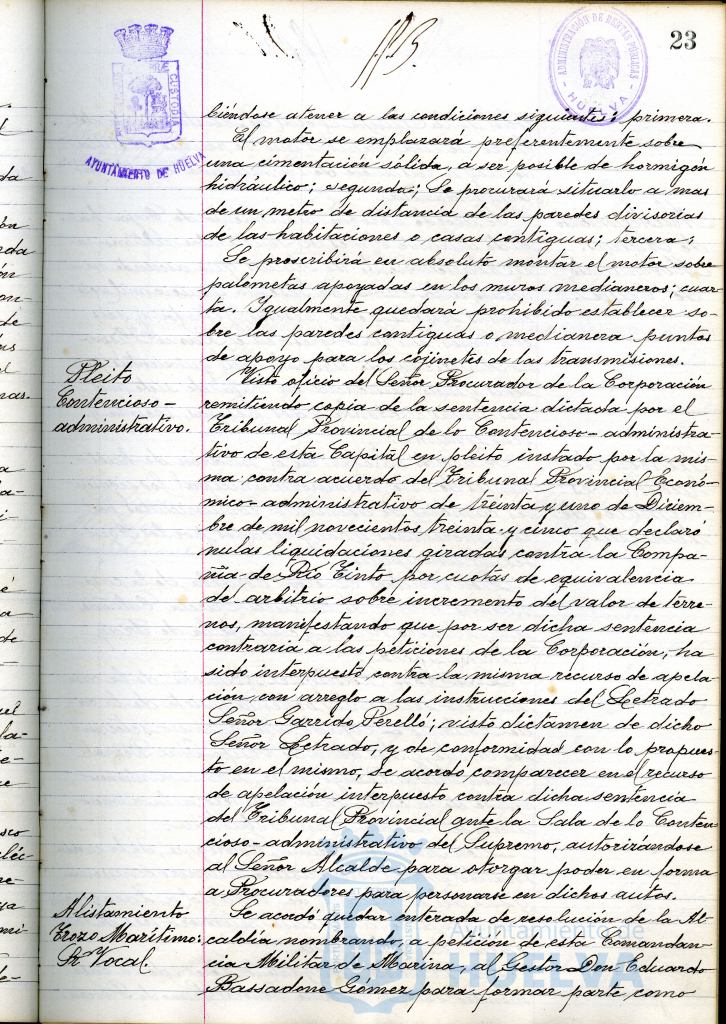 23
ADMINISTRACIÓN DE RENTAS PÚBLICAS
HUELVA
CUSTODIA
AYUNTAMIENTO DE HUELVA
biéndose atener a las condiciones siguientes: primera.
El motor se emplazará preferentemente sobre
una cimentación sólida, a ser posible de hormigón
hidráulico; segunda; Se procurará situarlo a mas
de un metro de distancia de las paredes divisorias
de las habitaciones o casas contiguas; tercera;
Se proscribirá en absoluto montar el motor sobre
palometas apoyadas en los muros medianeros; cuar-
ta. Igualmente quedará prohibido establecer so-
bre las paredes contiguas o medianera puntos
de apoyo para los cojinetes de las transmisiones.
Pleito
Contencioso-
administrativo.
Visto oficio del Señor Procurador de la Corporación
remitiendo copia de la sentencia dictada por el
Tribunal Provincial de lo Contencioso-administra-
tivo de esta Capital en pleito instado por la mis-
ma contra acuerdo del Tribunal Provincial Econó-
mico-administrativo de treinta y uno de Diciem-
bre de mil novecientos treinta y cinco que declaró
nulas liquidaciones giradas contra la Compa-
ñia de Rio Tinto por cuotas de equivalencia
de arbitrio sobre incremento del valor de terre-
nos, manifestando que por ser dicha sentencia
contraria a las peticiones de la Corporación, ha
sido interpuesto contra la misma recurso de apela-
ción con arreglo a las instrucciones del Letrado
Señor Garrido Perelló; visto dictamen de dicho
Señor Letrado, y de conformidad con lo propues-
to en el mismo, se acordó comparecer en el recurso
de apelación interpuesto contra dicha sentencia
del Tribunal Provincial ante la Sala de lo Conten-
cioso-administrativo del Supremo, autorizándose
al Señor Alcalde para otorgar poder en forma
a Procuradores para personarse en dichos autos.
Alistamiento
Trozo Marítimo:
Vocal.
Se acordó quedar enterada de resolución de la Al-
caldía nombrando, a petición de esta Comandan-
cia Militar de Marina, al Gestor Don Eduardo
Bassadone Gómez para formar parte como
Ayuntamiento de
HUELVA